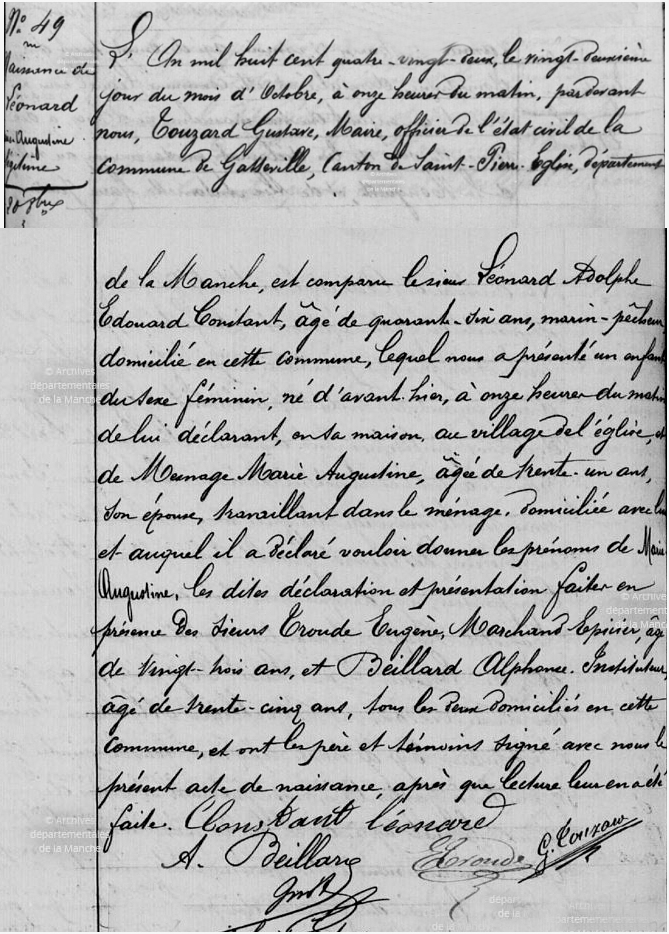 N° 49
Naissance de
Léonard
Marie Augustine
légitime
20 8bre
L'An mil huit cent quatre-vingt-deux, le vingt-deuxième
jour du mois d'Octobre, à onze heures du matin, pardevant
nous, Touzard Gustave, Maire, officier de l'état civil de la
commune de Gatteville, Canton de Saint-Pierre-Eglise, département
de la Manche, est comparu le sieur Léonard Adolphe
Edouard Constant, âgé de quarante-six ans, marin-pêcheur,
domicilié en cette commune, lequel nous a présenté un enfant
du sexe féminin, né d'avant-hier, à onze heures du matin
de lui déclarant, en sa maison, au village de l'église, et
de Mesnage Marie Augustine, âgée de trente-un ans,
son épouse, travaillant dans le ménage, domiciliée avec lui
et auquel il a déclaré vouloir donner les prénoms de Marie
Augustine, les dites déclaration et présentation faites en
présence des sieurs Troude Eugène, Marchand Epicier, âgé
de vingt-trois ans, et Beillard Alphonse, Instituteur,
âgé de trente-cinq ans, tous les deux domiciliés en cette
commune, et ont les père et témoins signé avec nous le
présent acte de naissance, après que lecture leur en a été
faite. Constant léonard
A. Beillard
E Troude
G. Touzard
Instr
© Archives
départementales
de la Manche
© Archives
départementales
de la Manche
© Archives
départementales
de la Manche